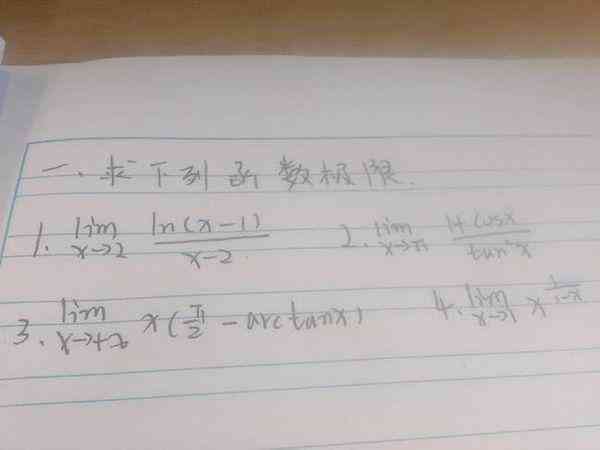 一、求下列函数极限.
1. lim x→2 ln(x-1)/(x-2) 2. lim x→π (1+cosx)/tan²x
3. lim x→+∞ x(π/2 - arctanx) 4. lim x→1 x^(1/(1-x))